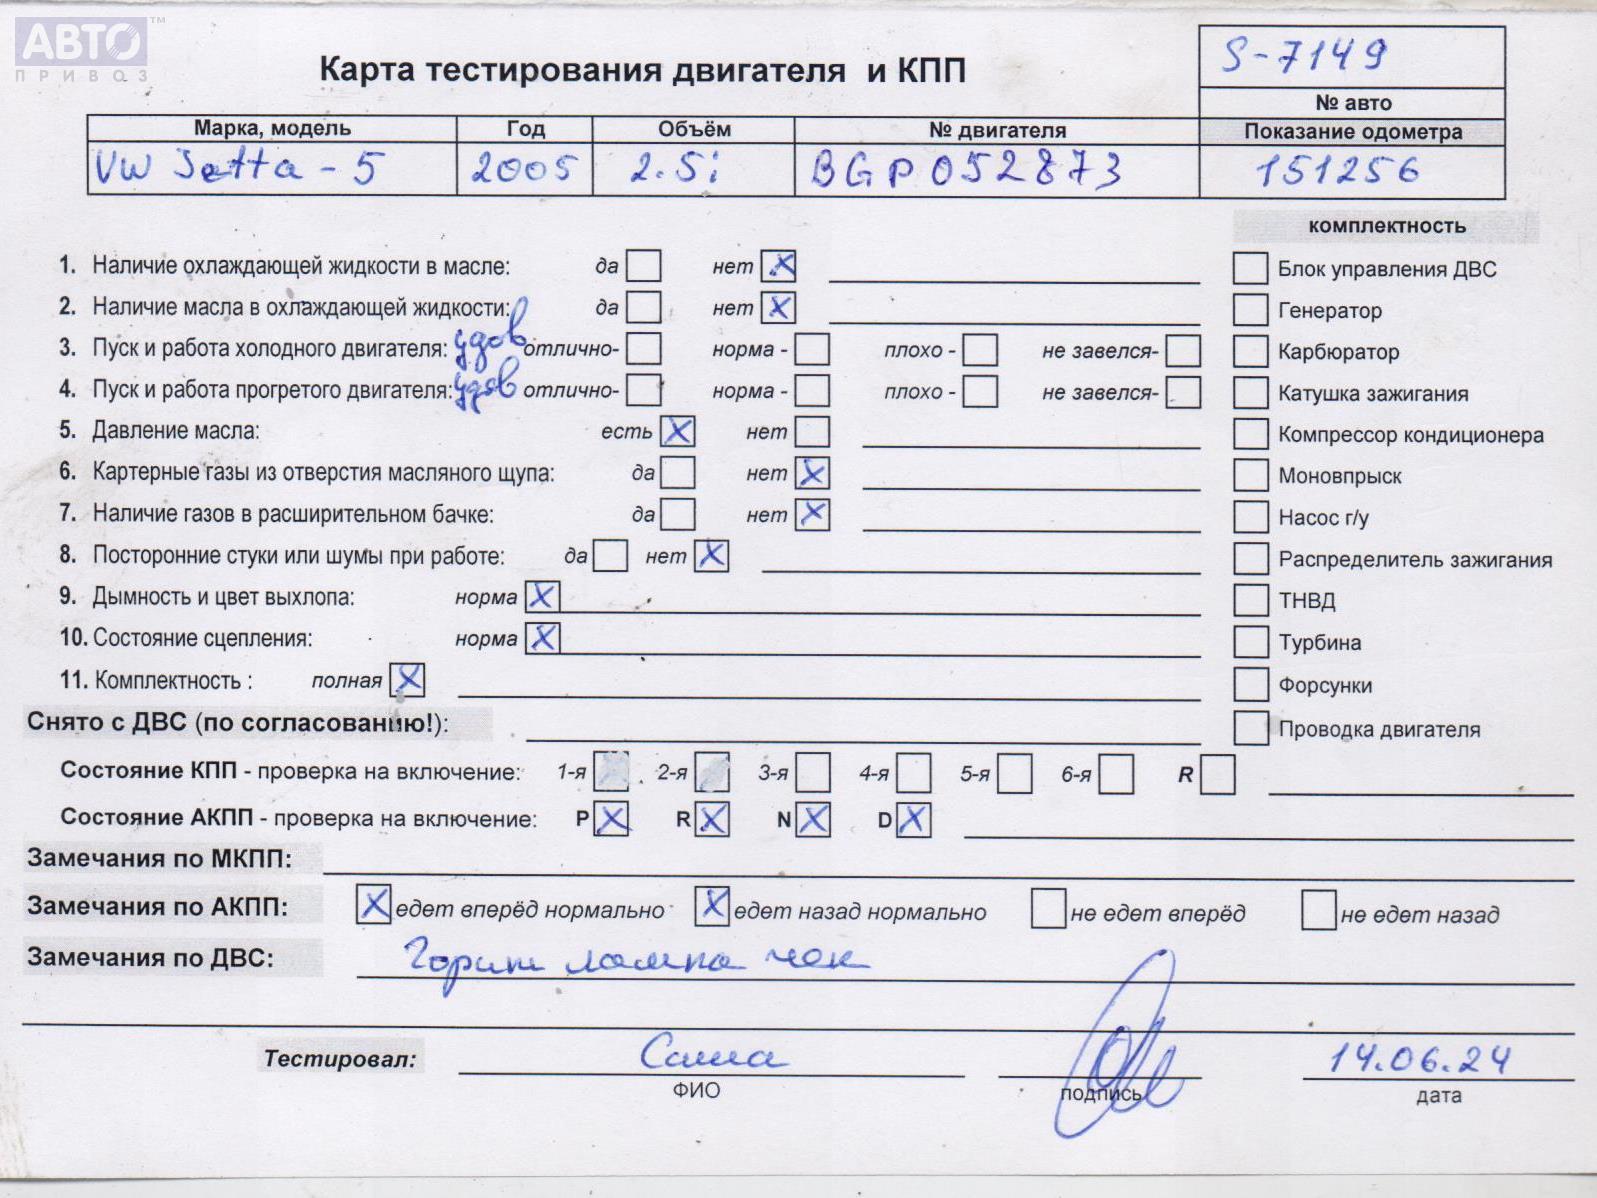 АВТО™
ПРИВОЗ
Карта тестирования двигателя и КПП
S-7149
№ авто
Марка, модель Год Объём № двигателя Показание одометра
VW Jetta - 5 2005 2.5i BGP052873 151256
комплектность
1. Наличие охлаждающей жидкости в масле: да нет X
Блок управления ДВС
2. Наличие масла в охлаждающей жидкости: да нет X
Генератор
3. Пуск и работа холодного двигателя: удов отлично- норма - плохо - не завелся-
Карбюратор
4. Пуск и работа прогретого двигателя: удов отлично- норма - плохо - не завелся-
Катушка зажигания
5. Давление масла: есть X нет
Компрессор кондиционера
6. Картерные газы из отверстия масляного щупа: да нет X
Моновпрыск
7. Наличие газов в расширительном бачке: да нет X
Насос г/у
8. Посторонние стуки или шумы при работе: да нет X
Распределитель зажигания
9. Дымность и цвет выхлопа: норма X
ТНВД
10. Состояние сцепления: норма X
Турбина
11. Комплектность : полная X
Форсунки
Снято с ДВС (по согласованию!):
Проводка двигателя
Состояние КПП - проверка на включение: 1-я 2-я 3-я 4-я 5-я 6-я R
Состояние АКПП - проверка на включение: P X R X N X D X
Замечания по МКПП:
Замечания по АКПП: X едет вперёд нормально X едет назад нормально не едет вперёд не едет назад
Замечания по ДВС: Горит лампа чек
Тестировал: Саша 14.06.24
ФИО подпись дата